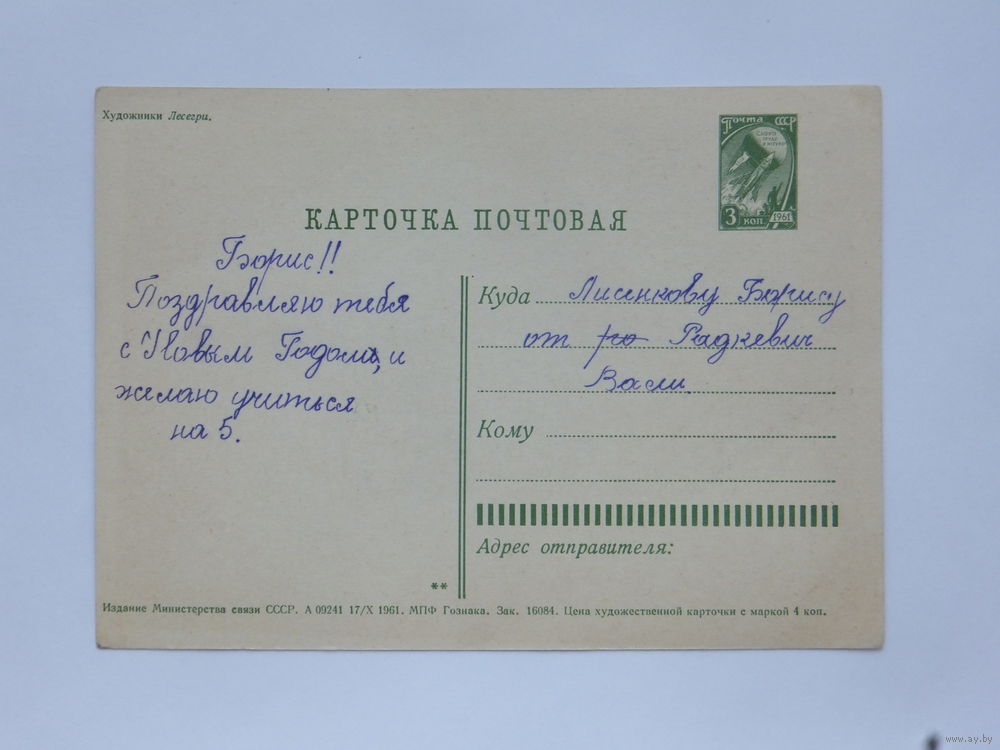 Художники Лесегри.
Почта СССР
3 коп. 1961
КАРТОЧКА ПОЧТОВАЯ
Борис!!
Поздравляю тебя
с Новым Годом, и
желаю учиться
на 5.
Куда Лисенкову Борису
от Радкевич
Васи.
Кому
Адрес отправителя:
**
Издание Министерства связи СССР. А 09241 17/X 1961. МПФ Гознака. Зак. 16084. Цена художественной карточки с маркой 4 коп.
www.ay.by